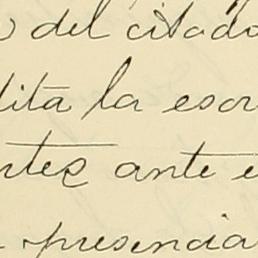 del citado
dita la escr
rtes ante e
presencia